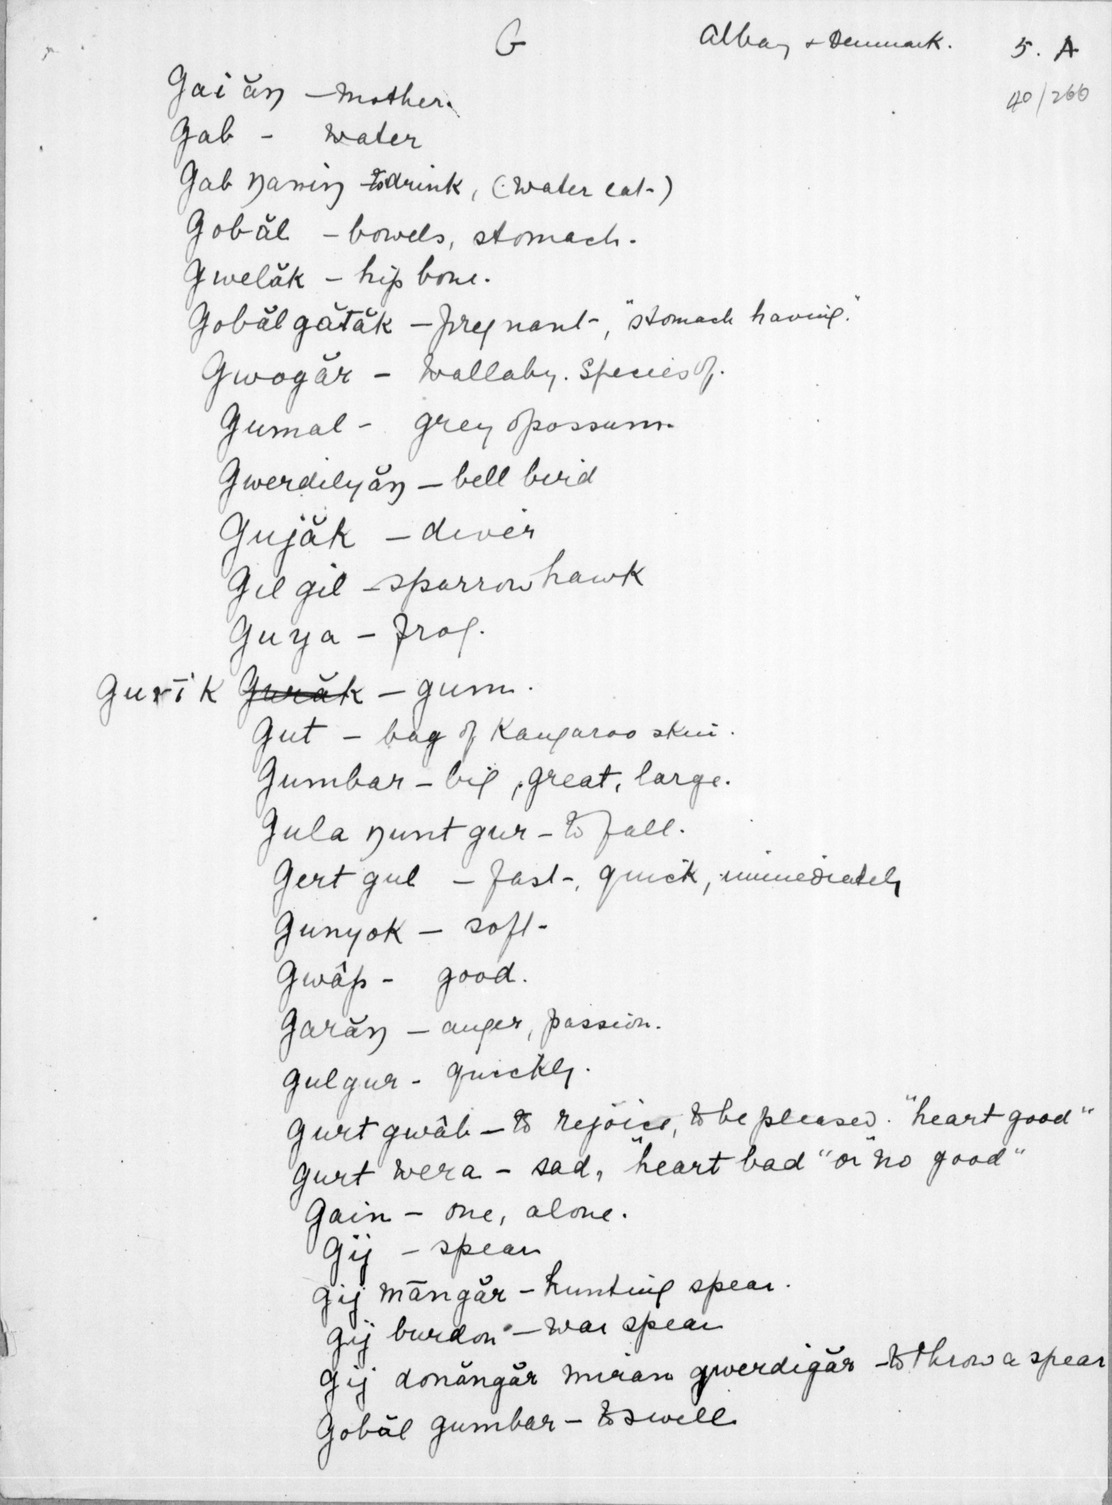 G
Albany + Denmark. 5. A
40/266
Gai ăŋ – mother.
Gab - water
Gab ŋaniŋ to drink, (water eat-)
Gobăl – bowels, stomach.
Gwelăk – hip bone.
Gobăl gătăk – pregnant-, "stomach having".
Gwogăr – wallaby. species of.
Gumal - grey opossum.
Gwerdilyăŋ – bell bird
Gujăk – diver
Gil gil – sparrow hawk
Guya – frog.
Gurīk Gurăk – gum.
Gut – bag of Kangaroo skin.
Gumbar – big, great, large.
Gula ŋunt gur – to fall.
Gert gul – fast-, quick, immediately
Gunyok – soft-
Gwâp - good.
Garăŋ – anger, passion.
gulgur - quickly.
gurt gwâb – to rejoice, to be pleased. "heart good"
gurt wera – sad, "heart bad" or "no good"
Gain – one, alone.
Gij – spear
gij māngăr – hunting spear.
gij burdon – war spear
gij donăngăr miran gwerdigăr – to throw a spear
Gobăl gumbar – to swell